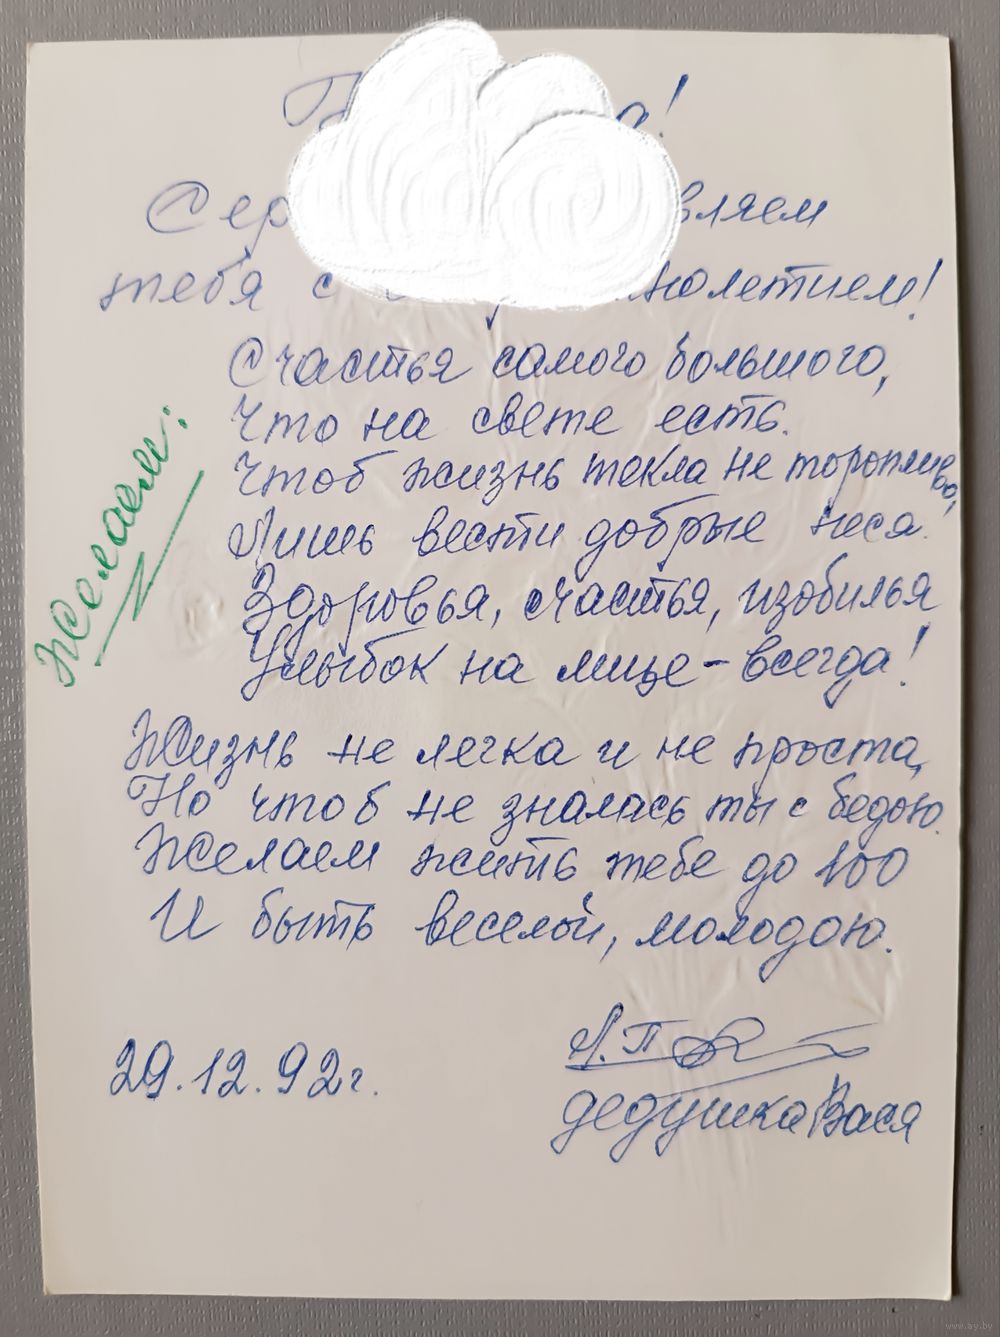 тебя с
Счастья самого большого,
Что на свете есть.
Желаем:
Чтоб жизнь текла не торопливо,
Лишь вести добрые неся.
Здоровья, счастья, изобилья
Улыбок на лице - всегда!
Жизнь не легка и не проста,
Но чтоб не зналась ты с бедою.
Желаем жить тебе до 100
И быть веселой, молодою.
29.12.92г.
дедушка Вася
www.ay.by